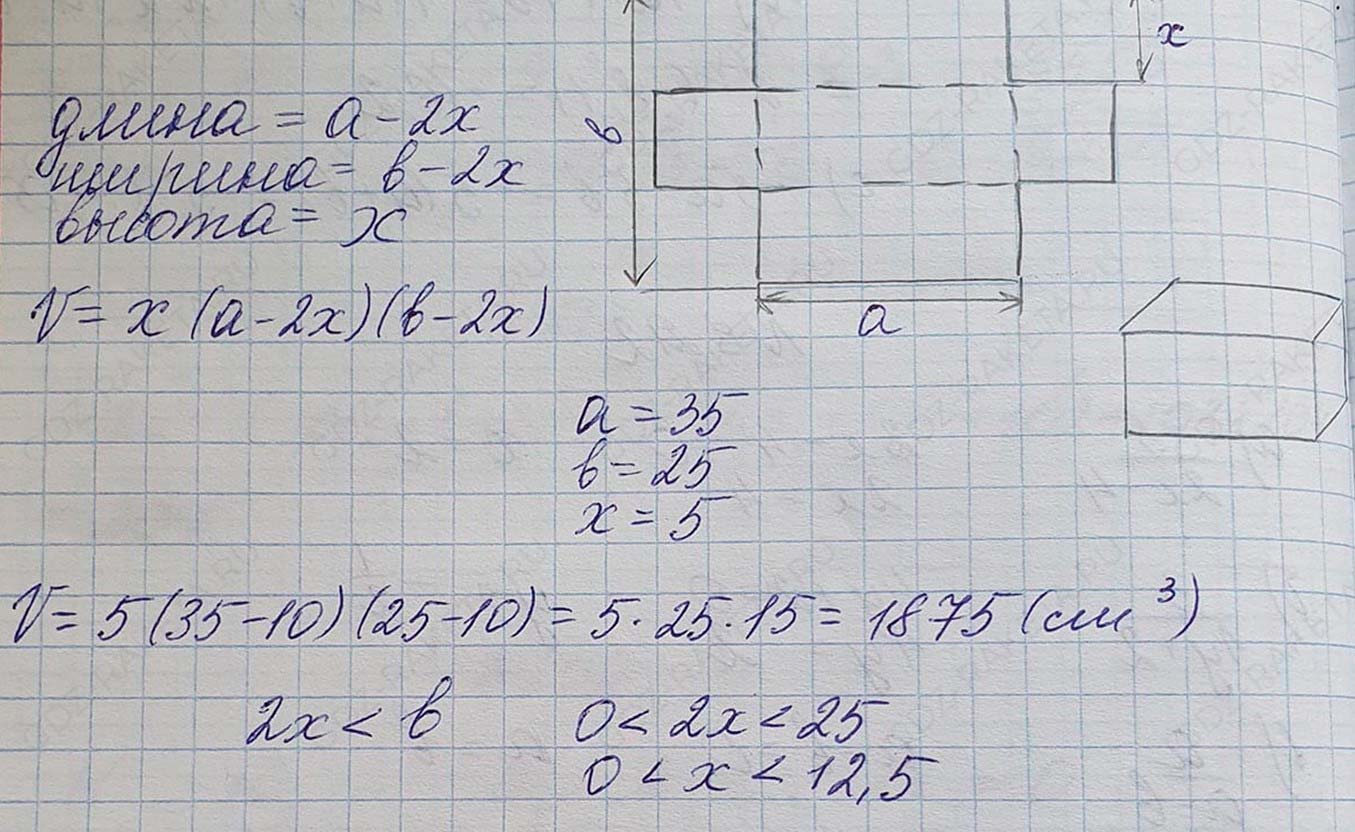 x
длина = a - 2x
ширина = в - 2x
высота = x
в
V = x (a - 2x)(в - 2x)
a
a = 35
в = 25
x = 5
V = 5 (35 - 10) (25 - 10) = 5 · 25 · 15 = 1875 (см³)
2x < в
0 < 2x < 25
0 < x < 12,5